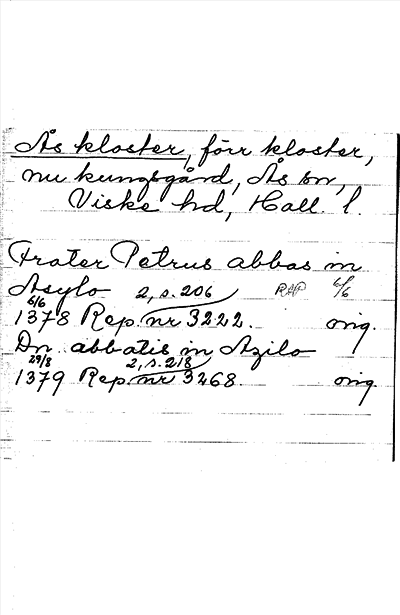 Ås kloster, förr kloster,
nu kungsgård, Ås sn,
Viske hd, Hall. l.
Frater Petrus abbas in
Asylo 2, s. 206 RAP 6/6
6/6
1378 Rep. nr 3222. orig.
Dn. abbatis in Azilo
29/8 2, s. 218
1379 Rep. nr 3268. orig.